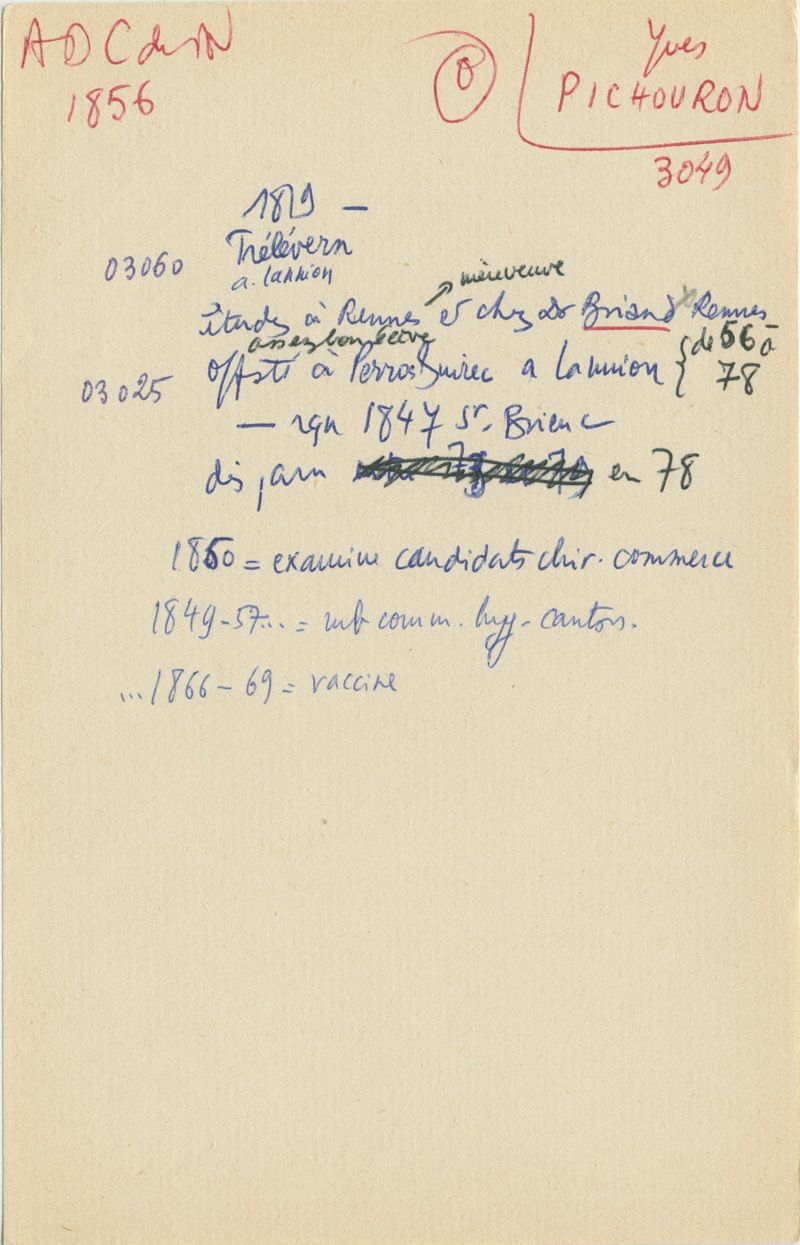 ADC du N
1856
0
Yves
PICHOURON
3049
1819 —
03060 Trélévern
a. Lannion
mère veuve
études à Rennes & chez Dr Briand Rennes
assez bon élève
03025 offsté à Perros Guirec a Lannion } de 56 à
78
— rqn 1847 St. Brieuc
dis parn en 78
1850 = examine candidats chir. commerce
1849-57... = mb comm. hyg. canton.
...1866-69 = vaccine